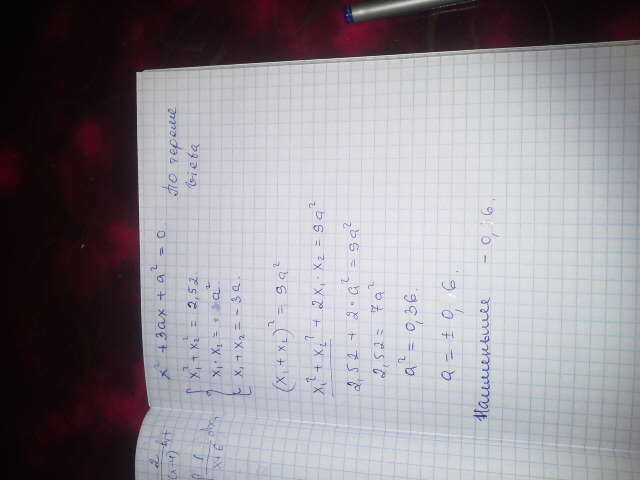 x² + 3ax + a² = 0.
По тереме
Виета
x₁² + x₂² = 2,52.
x₁ · x₂ = a².
x₁ + x₂ = - 3a.
(x₁ + x₂)² = 9a²
x₁² + x₂² + 2x₁ · x₂ = 9a²
2,52 + 2 · a² = 9a²
2,52 = 7a²
a² = 0,36.
a = ± 0, 6.
Наименьшее - 0, 6.